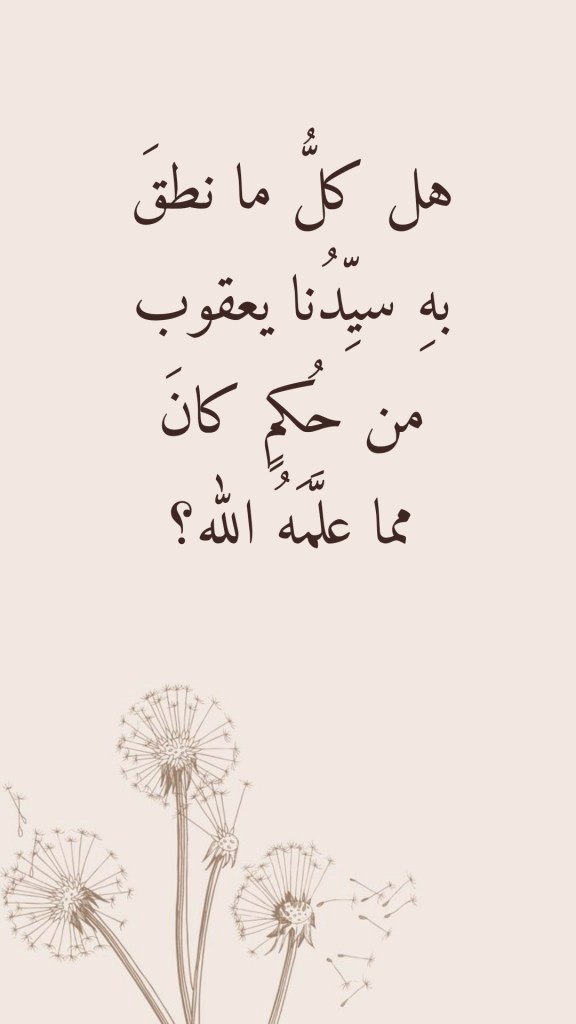 هل كلُّ ما نطقَ
بهِ سيِّدُنا يعقوب
من حُكمٍ كانَ
مما علَّمَهُ الله؟